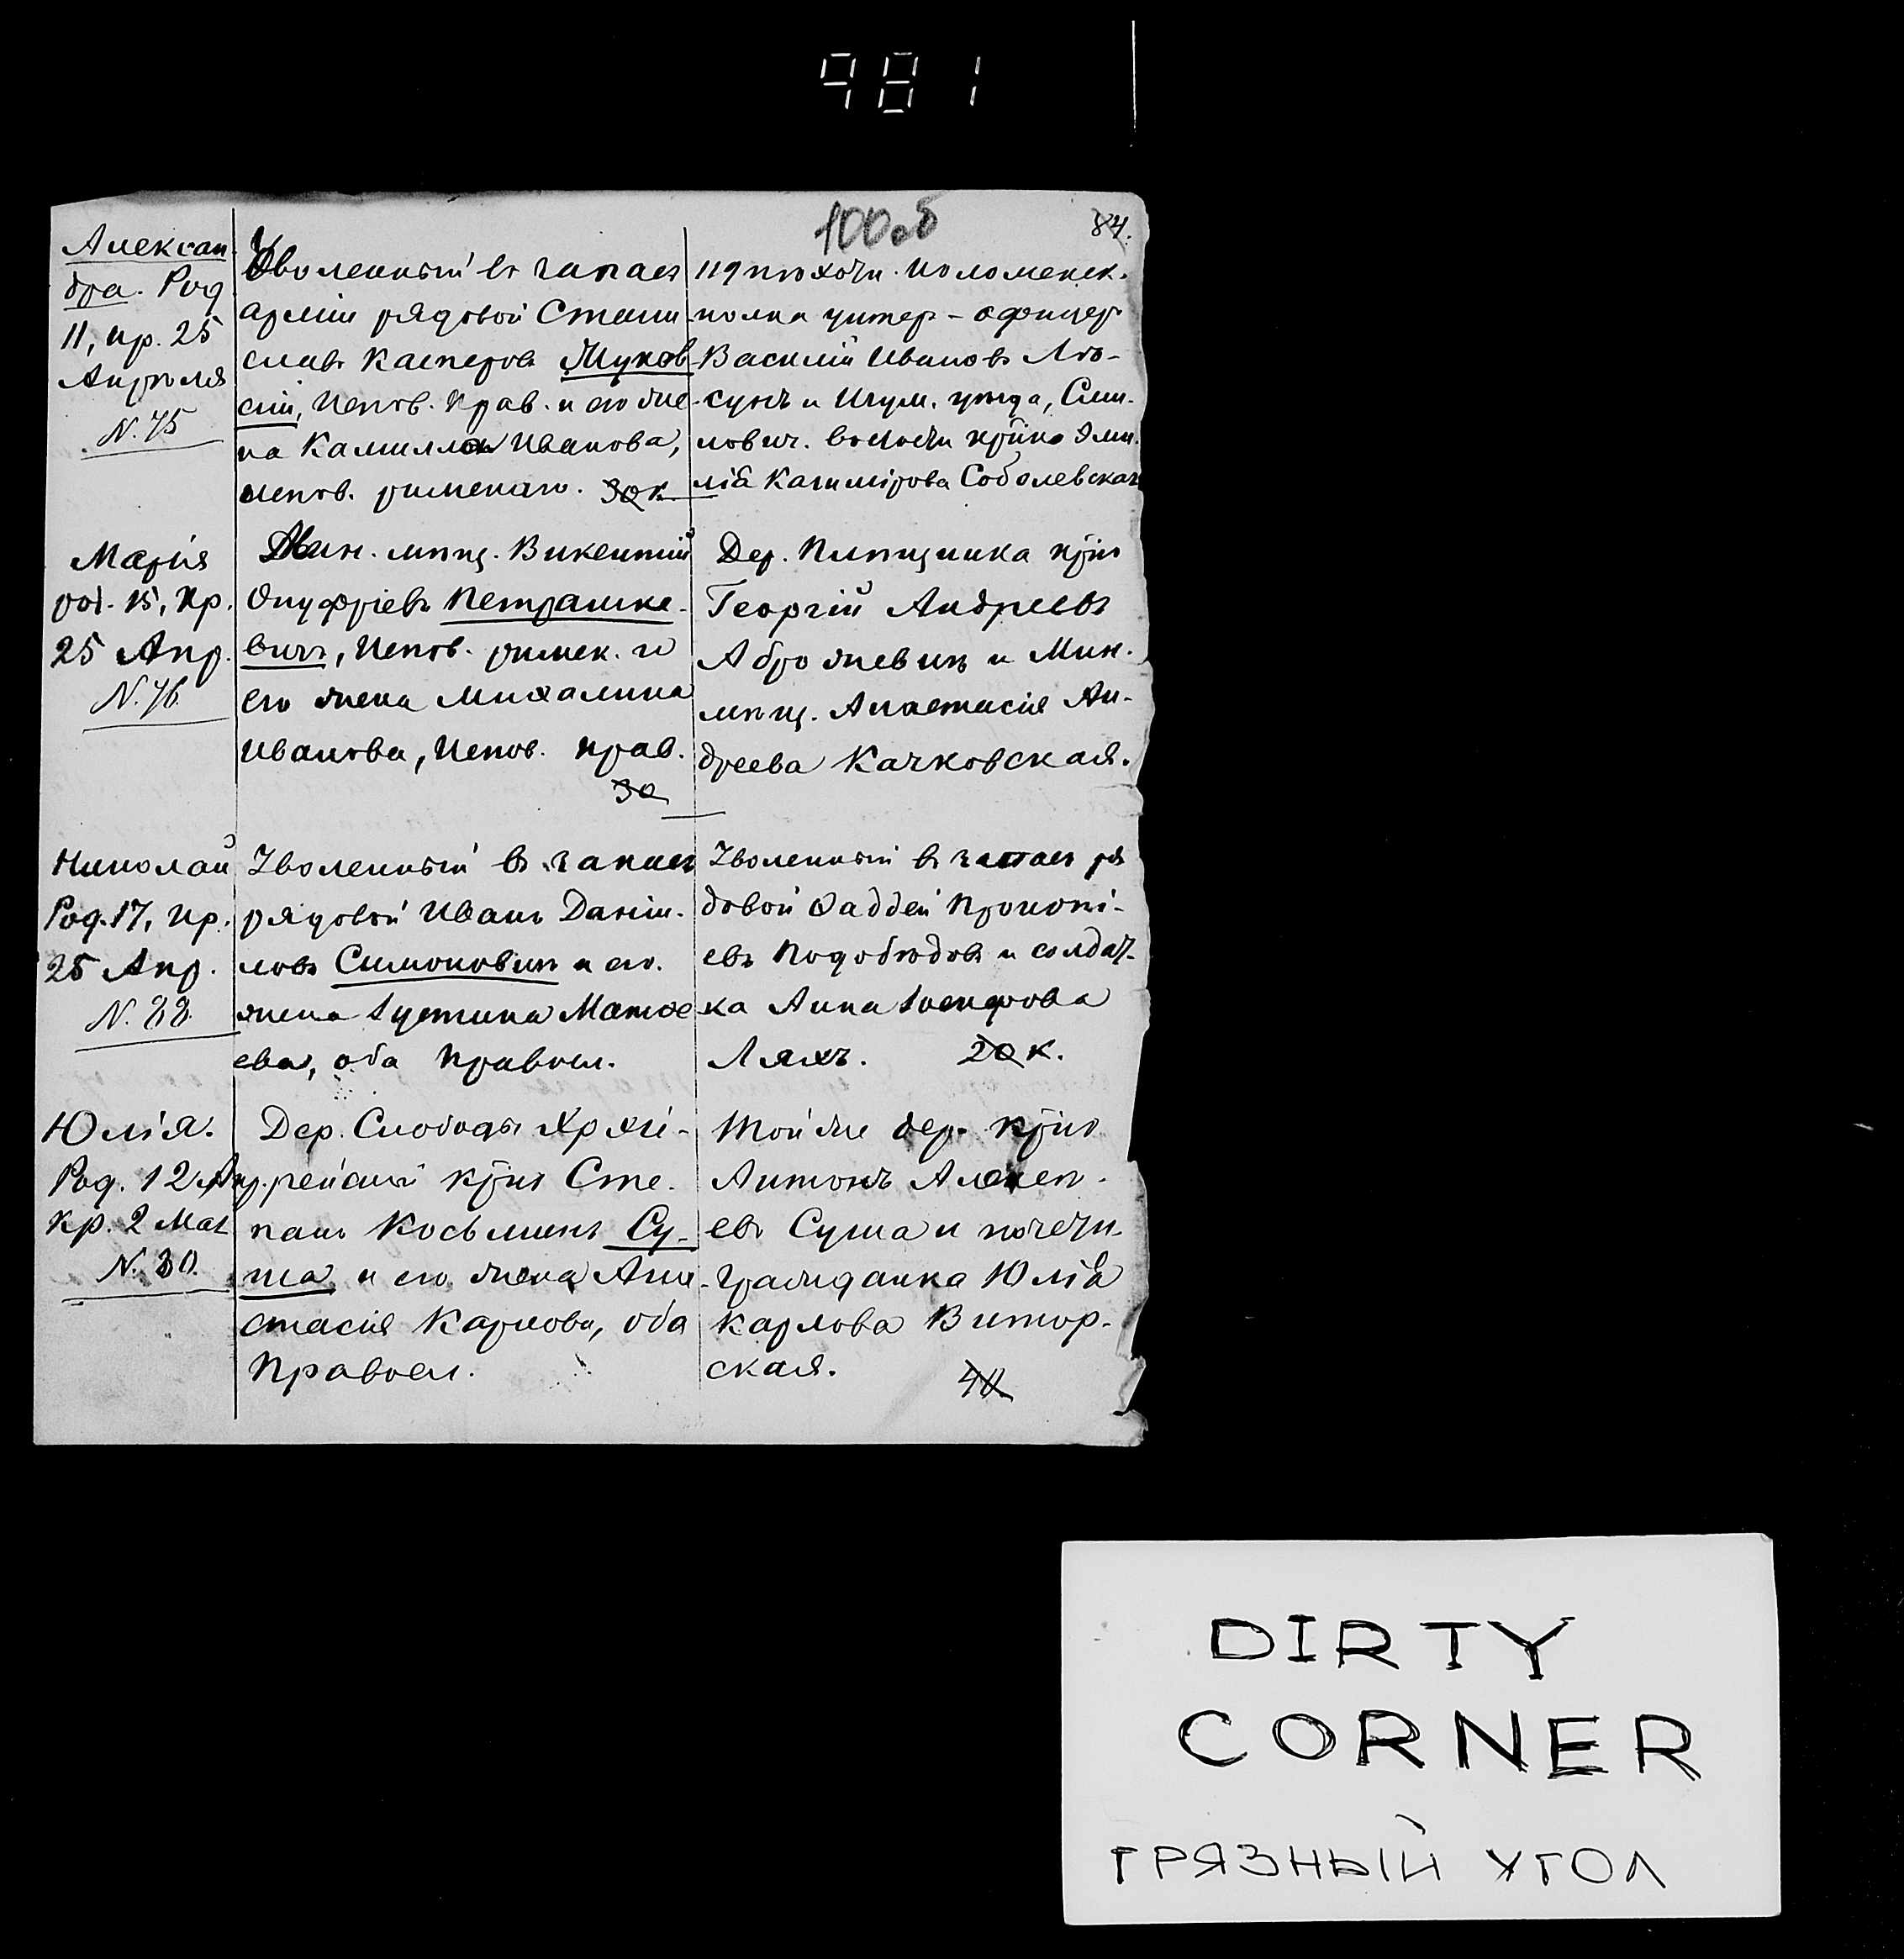 981
100об
84.
Алексан-
дра. Род
11, кр. 25
Апрѣля
N. 75
Уволенный въ запасъ
арміи рядовой Стани-
славъ Касперовъ Жуков-
скій, испов. прав. и его же-
на Камилла Иванова,
испов. римскаго. 30 к.
119 пѣхотн. Коломенск.
полка унтер-офицеръ
Василій Ивановъ Ло-
сукъ и Игум. уѣзда, Сми-
лович. волости крѣка Эми-
лія Казимірова Соболевская
Марія
род. 15, кр.
25 Апр.
N. 76
Мин. мѣщ. Викентій
Онуфріевъ Петрашке-
вичъ, испов. римск. и
его жена Михалина
Иванова, испов. прав.
30
Дер. крѣнъ
Георгій Андреевъ
Аброжевичъ и Мин.
мѣщ. Анастасія Ан-
дреева Качковская.
Николай
Род. 17, кр.
25 Апр.
N. 88.
Уволенный въ запасъ
рядовой Иванъ Даніи-
ловъ Симоновичъ и его
жена Іустина Матѳе-
ева, оба правосл.
Уволенный въ запасъ ря
довой Ѳаддей Прокопі-
евъ Подобѣдовъ и солдат-
ка Анна Іосифова
Ляхъ. 20 к.
Юлія.
Род. 12 Апр.
кр. 2 Мая
N. 80.
Дер. Слободы Архі-
рейской крѣнъ Сте-
панъ Косьминъ Су-
ша и его жена Ана-
стасія Карпова, оба
правосл.
Той же дер. крѣнъ
Антонъ Алексѣ-
евъ Суша и почетн.
гражданка Юлія
Карлова Витор-
ская.
40
DIRTY
CORNER
ГРЯЗНЫЙ УГОЛ